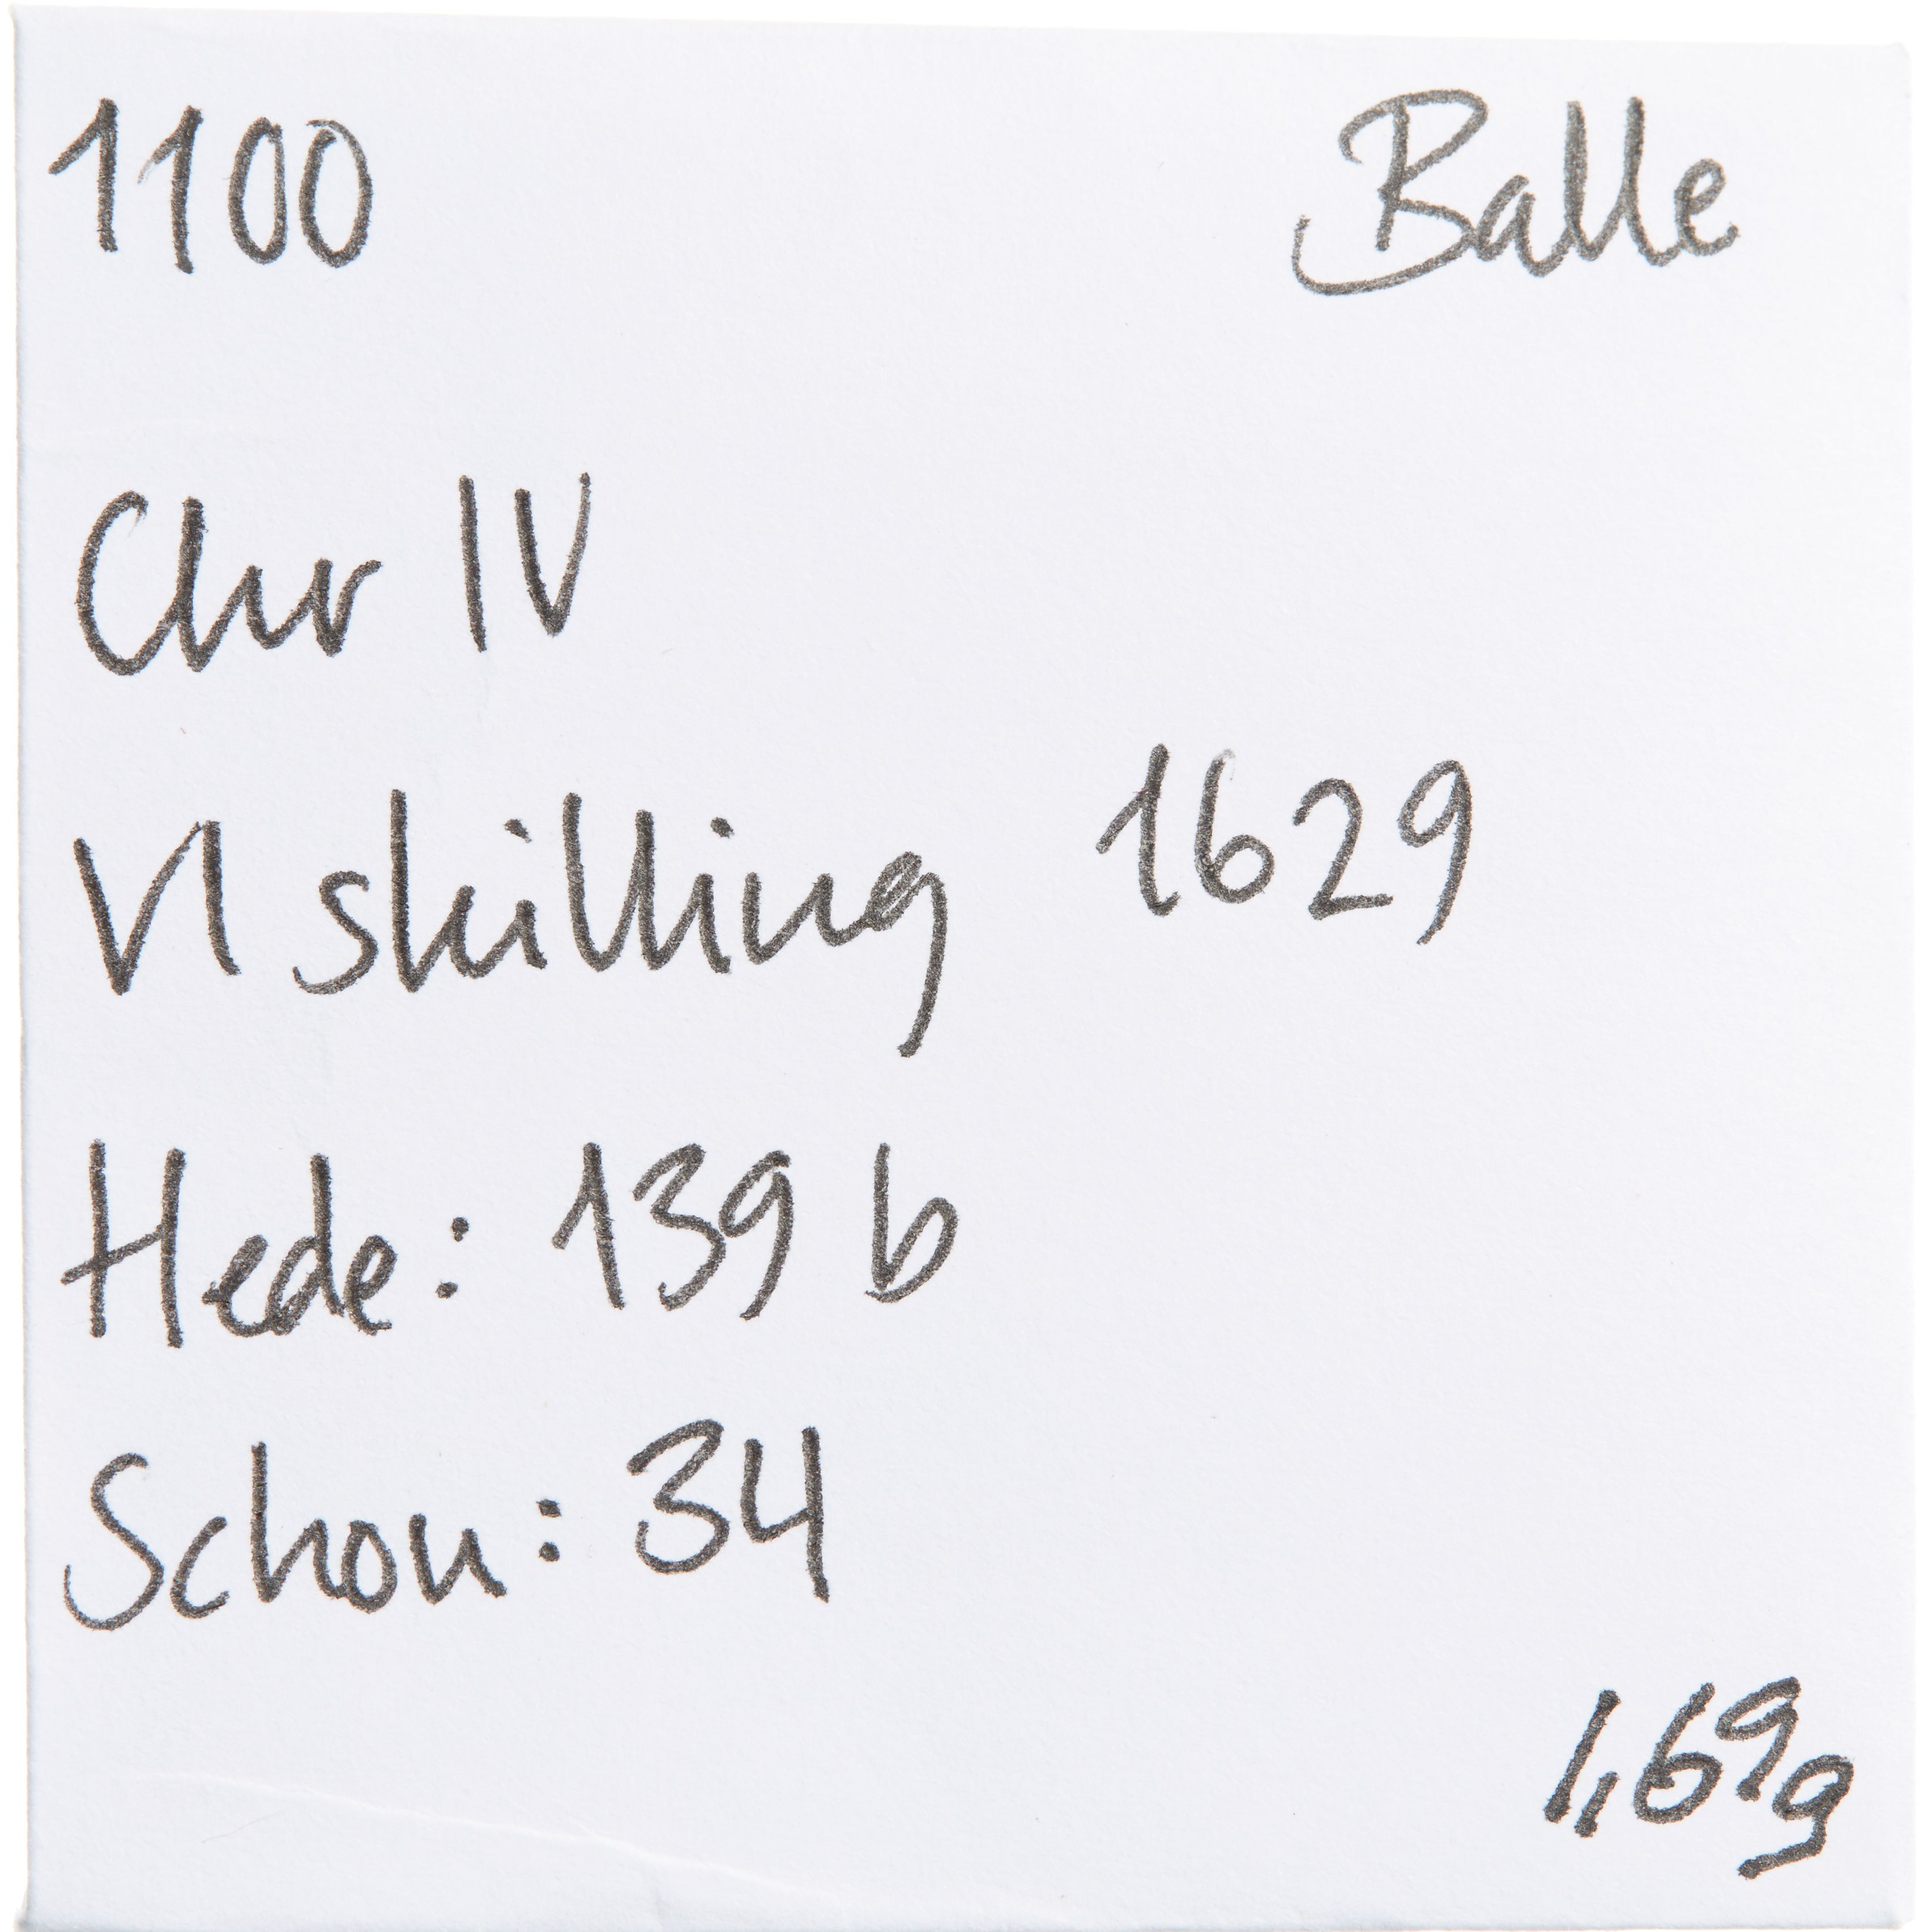 1100 Balle
Chr IV
VI skilling 1629
Hede: 139 b
Schou: 34
1,69g